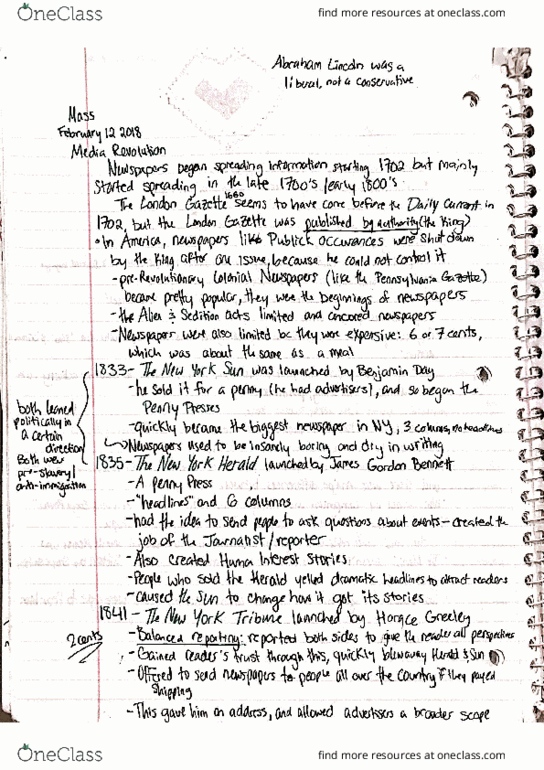 OneClass
find more resources at oneclass.com
Abraham Lincoln was a
liberal, not a conservative
Mass
February 12 2018
Media Revolution
Newspapers began spreading information starting 1702 but mainly
started spreading in the late 1700's/early 1800's
1660
The London Gazette seems to have come before the Daily Currant in
1702, but the London Gazette was published by authority (the King)
• In America, newspapers like Publick Occurances were shut down
by the King after one issue, because he could not control it
- pre-Revolutionary Colonial Newspapers (like the Pennsylvania Gazette)
became pretty popular, they were the beginnings of newspapers
- the Alien & Sedition acts limited and cencored newspapers
- Newspapers were also limited bc they were expensive: 6 or 7 cents,
which was about the same as a meal
1833 - The New York Sun was launched by Benjamin Day
- he sold it for a penny (he had advertisers), and so began the
Penny Presses
- quickly became the biggest newspaper in NY, 3 columns, no headlines
Newspapers used to be insanely boring and dry in writing
both leaned
politically in
a certain
direction
Both were
pro-slavery/
anti-immigration
1835 - The New York Herald launched by James Gordon Bennett
- A penny Press
- "headlines" and 6 columns
- had the idea to send people to ask questions about events - created the
job of the Journalist/reporter
- Also created Human Interest stories
- People who sold the Herald yelled dramatic headlines to attract readers
- caused the Sun to change how it got its stories
1841 - The New York Tribune launched by Horace Greeley
2 cents
- Balanced reporting: reported both sides to give the reader all perspectives
- Gained reader's trust through this, quickly blew away Herald & Sun
- Offered to send newspapers to people all over the country if they payed
shipping
- This gave him an address, and allowed advertisers a broader scope
OneClass
find more resources at oneclass.com